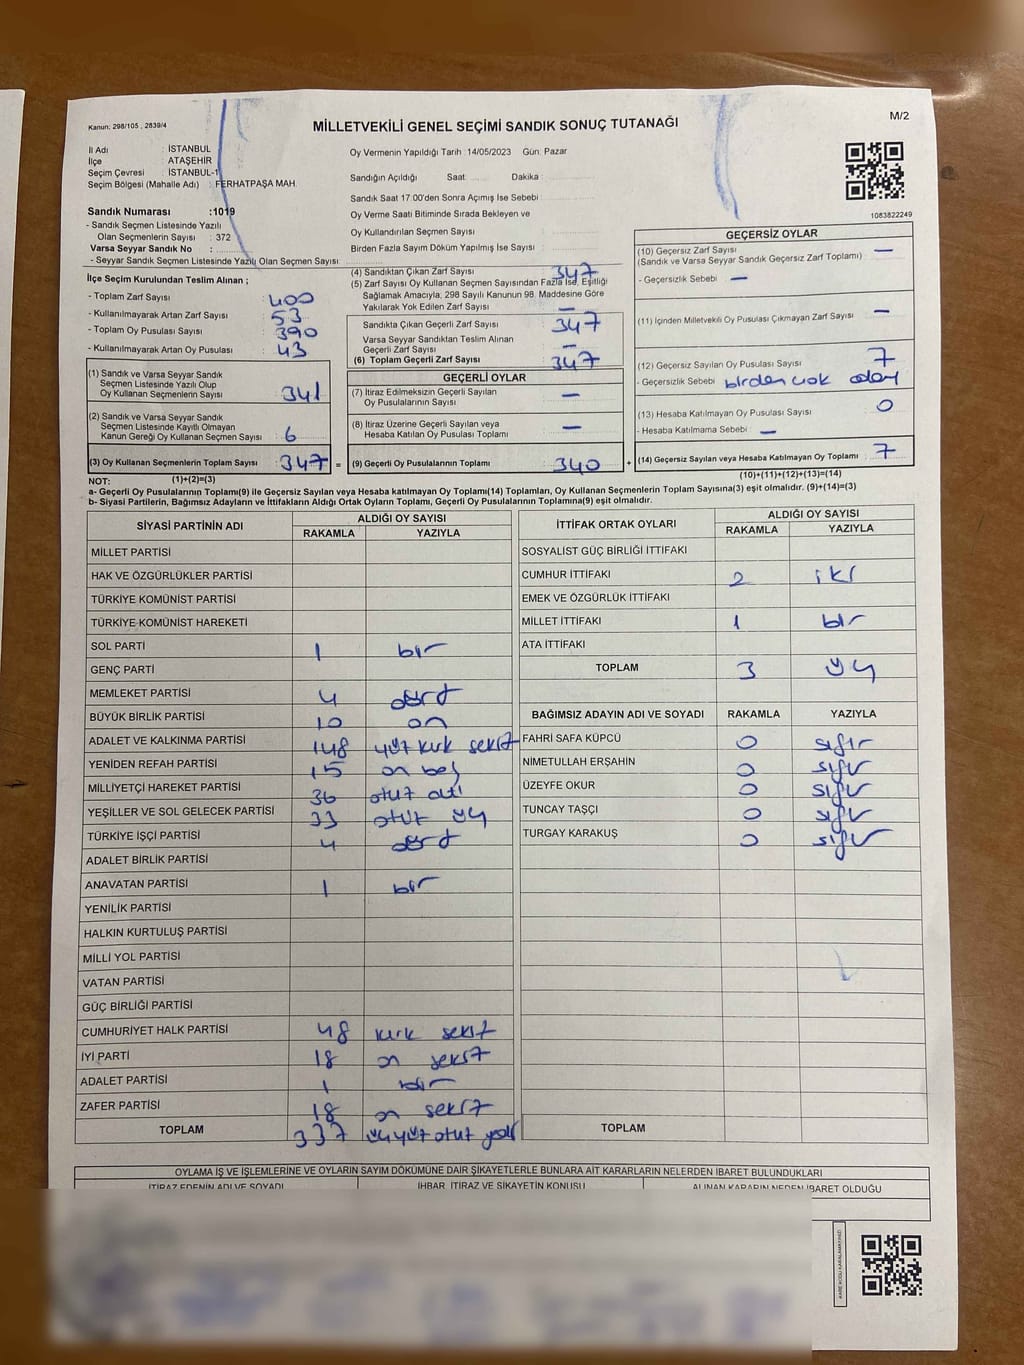 Kanun: 298/105 , 2839/4
MİLLETVEKİLİ GENEL SEÇİMİ SANDIK SONUÇ TUTANAĞI
M/2
İl Adı : İSTANBUL
İlçe : ATAŞEHİR
Seçim Çevresi : İSTANBUL-1
Seçim Bölgesi (Mahalle Adı) : FERHATPAŞA MAH.
Sandık Numarası :1019
- Sandık Seçmen Listesinde Yazılı
Olan Seçmenlerin Sayısı : 372
Varsa Seyyar Sandık No :
- Seyyar Sandık Seçmen Listesinde Yazılı Olan Seçmen Sayısı
Oy Vermenin Yapıldığı Tarih :14/05/2023 Gün: Pazar
Sandığın Açıldığı Saat Dakika
Sandık Saat 17.00'den Sonra Açılmış İse Sebebi
Oy Verme Saati Bitiminde Sırada Bekleyen ve
Oy Kullandırılan Seçmen Sayısı
Birden Fazla Sayım Döküm Yapılmış İse Sayısı
1083822249
İlçe Seçim Kurulundan Teslim Alınan ;
- Toplam Zarf Sayısı : 400
- Kullanılmayarak Artan Zarf Sayısı : 53
- Toplam Oy Pusulası Sayısı : 390
- Kullanılmayarak Artan Oy Pusulası : 43
(1) Sandık ve Varsa Seyyar Sandık
Seçmen Listesinde Yazılı Olup
Oy Kullanan Seçmenlerin Sayısı : 341
(2) Sandık ve Varsa Seyyar Sandık
Seçmen Listesinde Kayıtlı Olmayan
Kanun Gereği Oy Kullanan Seçmen Sayısı : 6
(3) Oy Kullanan Seçmenlerin Toplam Sayısı : 347 =
(4) Sandıktan Çıkan Zarf Sayısı : 347
(5) Zarf Sayısı Oy Kullanan Seçmen Sayısından Fazla İse, Eşitliği
Sağlamak Amacıyla; 298 Sayılı Kanunun 98. Maddesine Göre
Yakılarak Yok Edilen Zarf Sayısı : —
Sandıkta Çıkan Geçerli Zarf Sayısı : 347
Varsa Seyyar Sandıktan Teslim Alınan
Geçerli Zarf Sayısı : —
(6) Toplam Geçerli Zarf Sayısı : 347
GEÇERLİ OYLAR
(7) İtiraz Edilmeksizin Geçerli Sayılan
Oy Pusulalarının Sayısı : —
(8) İtiraz Üzerine Geçerli Sayılan veya
Hesaba Katılan Oy Pusulası Toplamı : —
(9) Geçerli Oy Pusulalarının Toplamı : 340 +
GEÇERSİZ OYLAR
(10) Geçersiz Zarf Sayısı : —
(Sandık ve Varsa Seyyar Sandık Geçersiz Zarf Toplamı)
- Geçersizlik Sebebi : —
(11) İçinden Milletvekili Oy Pusulası Çıkmayan Zarf Sayısı : —
(12) Geçersiz Sayılan Oy Pusulası Sayısı : 7
- Geçersizlik Sebebi : birden çok aday
(13) Hesaba Katılmayan Oy Pusulası Sayısı : 0
- Hesaba Katılmama Sebebi : —
(14) Geçersiz Sayılan veya Hesaba Katılmayan Oy Toplamı : 7
NOT: (1)+(2)=(3) (10)+(11)+(12)+(13)=(14)
a- Geçerli Oy Pusulalarının Toplamı(9) ile Geçersiz Sayılan veya Hesaba katılmayan Oy Toplamı(14) Toplamları, Oy Kullanan Seçmenlerin Toplam Sayısına(3) eşit olmalıdır. (9)+(14)=(3)
b- Siyasi Partilerin, Bağımsız Adayların ve İttifakların Aldığı Ortak Oyların Toplamı, Geçerli Oy Pusulalarının Toplamına(9) eşit olmalıdır.
SİYASİ PARTİNİN ADI ALDIĞI OY SAYISI
RAKAMLA YAZIYLA
MİLLET PARTİSİ
HAK VE ÖZGÜRLÜKLER PARTİSİ
TÜRKİYE KOMÜNİST PARTİSİ
TÜRKİYE KOMÜNİST HAREKETİ
SOL PARTİ 1 bir
GENÇ PARTİ
MEMLEKET PARTİSİ 4 dört
BÜYÜK BİRLİK PARTİSİ 10 on
ADALET VE KALKINMA PARTİSİ 148 yüz kırk sekiz
YENİDEN REFAH PARTİSİ 15 on beş
MİLLİYETÇİ HAREKET PARTİSİ 36 otuz altı
YEŞİLLER VE SOL GELECEK PARTİSİ 33 otuz üç
TÜRKİYE İŞÇİ PARTİSİ 4 dört
ADALET BİRLİK PARTİSİ
ANAVATAN PARTİSİ 1 bir
YENİLİK PARTİSİ
HALKIN KURTULUŞ PARTİSİ
MİLLİ YOL PARTİSİ
VATAN PARTİSİ
GÜÇ BİRLİĞİ PARTİSİ
CUMHURİYET HALK PARTİSİ 48 kırk sekiz
İYİ PARTİ 18 on sekiz
ADALET PARTİSİ 1 bir
ZAFER PARTİSİ 18 on sekiz
TOPLAM 337 üçyüz otuz yedi
İTTİFAK ORTAK OYLARI ALDIĞI OY SAYISI
RAKAMLA YAZIYLA
SOSYALİST GÜÇ BİRLİĞİ İTTİFAKI
CUMHUR İTTİFAKI 2 iki
EMEK VE ÖZGÜRLÜK İTTİFAKI
MİLLET İTTİFAKI 1 bir
ATA İTTİFAKI
TOPLAM 3 üç
BAĞIMSIZ ADAYIN ADI VE SOYADI RAKAMLA YAZIYLA
FAHRİ SAFA KÜPCÜ 0 sıfır
NİMETULLAH ERŞAHİN 0 sıfır
ÜZEYFE OKUR 0 sıfır
TUNCAY TAŞÇI 0 sıfır
TURGAY KARAKUŞ 0 sıfır
TOPLAM
OYLAMA İŞ VE İŞLEMLERİNE VE OYLARIN SAYIM DÖKÜMÜNE DAİR ŞİKAYETLERLE BUNLARA AİT KARARLARIN NELERDEN İBARET BULUNDUKLARI
İTİRAZ EDENİN ADI VE SOYADI İHBAR, İTİRAZ VE ŞİKAYETİN KONUSU ALINAN KARARIN NEDEN İBARET OLDUĞU